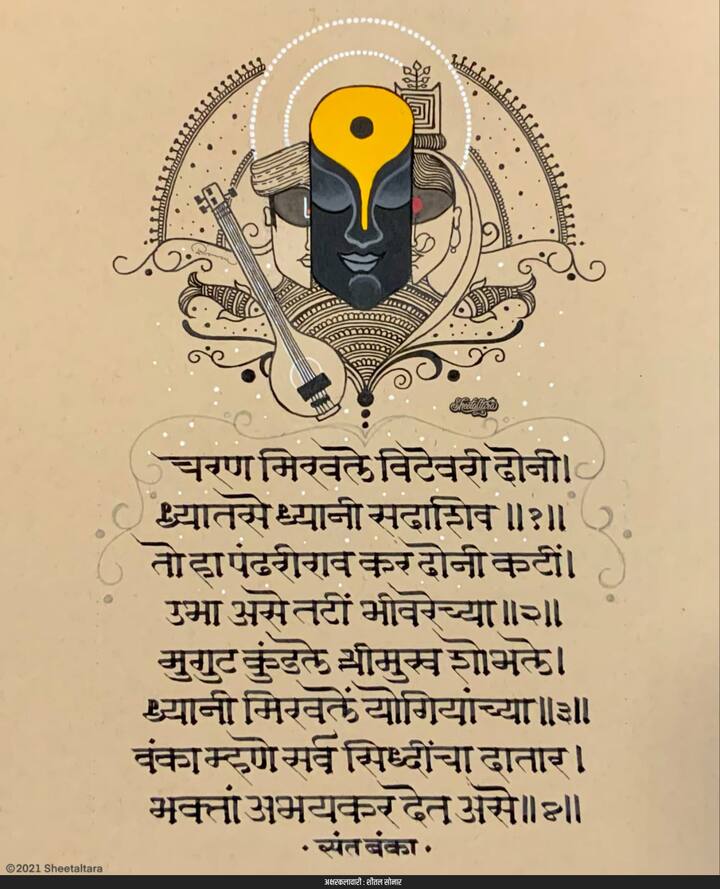 Sheetaltara
चरण मिरवले विटेवरी दोनी।
ध्यातसे ध्यानी सदाशिव ॥१॥
तो हा पंढरीराव कर दोनी कटीं।
उभा असे तटीं भीवरेच्या ॥२॥
मुगुट कुंडले श्रीमुख शोभले।
ध्यानी मिरवलें योगियांच्या ॥३॥
वंका म्हणे सर्व सिध्दींचा दातार।
भक्तां अभयकर देत असे ॥४॥
• संत बंका •
©2021 Sheetaltara
अक्षरकलावारी : शीतल सोनार